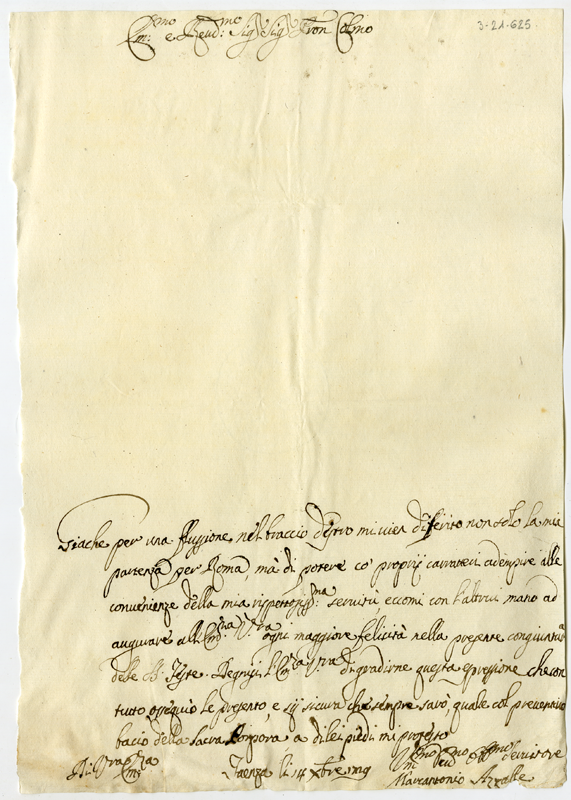 3-21-625
Em:mo e Reud:mo Sig Sig Pron Colmo
Giache per una flussione nel braccio destro mi vien diferito non solo la mia
partenza per Roma, mà di potere co' proprij caratteri adempire alle
convenienze della mia rispettosiss:ma servitù eccomi con l'altrui mano ad
augurare all'Em:za V:ra ogni maggiore felicità nella presente congiuntura
delle S:te Feste. Degnisi l'Em:za V:ra di gradirne questa espressione che con
tutto ossequio le presento, e sij sicura che sempre sarò, quale col preventivo
bacio della Sacra Porpora, a di lei piedi mi protesto
Di V:ra Em:za
Faenza li 14 Xbre
Um:mo Deu:mo Obb:mo Servitore
Marcantonio